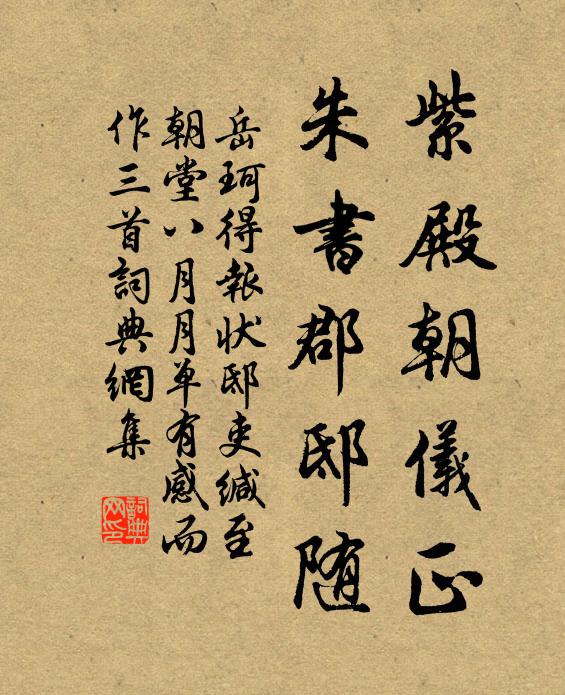 紫殿朝儀正
朱書郡邸随
岳珂得報状邸吏緘至
朝堂八月月单有感而
作三首詞典網集
詞典
网印